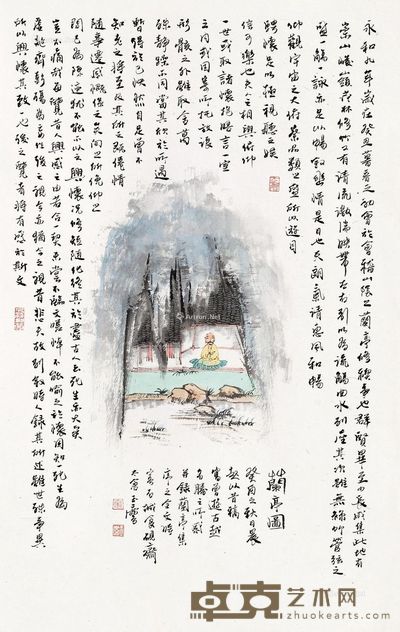 永和九年歲在癸丑暮春之初會於會稽山陰之蘭亭修禊事也群賢畢至少長咸集此地有
崇山峻嶺茂林修竹又有清流激湍映帶左右引以為流觴曲水列坐其次雖無絲竹管弦之
盛一觴一詠亦足以暢敘幽情是日也天朗氣清惠風和暢
仰觀宇宙之大俯察品類之盛所以遊目
騁懷足以極視聽之娛
信可樂也夫人之相與俯仰
一世或取諸懷抱晤言一室
之內或因寄所托放浪
形骸之外雖取舍萬
殊靜躁不同當其欣於所遇
暫得於己快然自足曾不
知老之將至及其所之既倦情
隨事遷感慨係之矣向之所欣俯仰之
間已為陳跡猶不能不以之興懷況修短隨化終期於盡古人云死生亦大矣
豈不痛哉每覽昔人興感之由若合一契未嘗不臨文嗟悼不能喻之於懷固知一死生為
虛誕齊彭殤為妄作後之視今亦猶今之視昔悲夫故列敘時人錄其所述雖世殊事異
所以興懷其致一也後之覽者將有感於斯文
蘭亭圖
癸酉之秋日晨
起以首稿
寫曾遊古越
名勝之所感
並錄蘭亭集
序之全文時
客
Artron.Net
卓克艺术网
www.zhuokearts.com